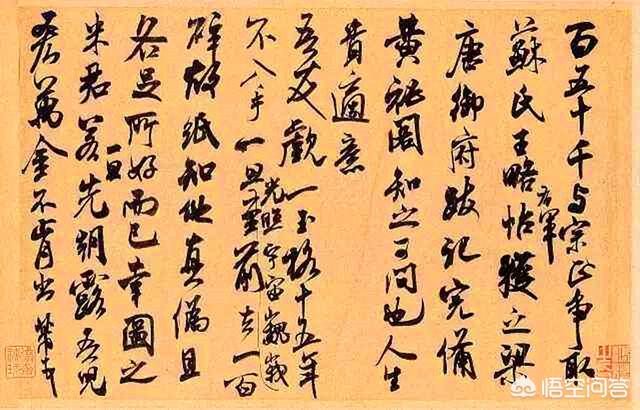 百五十千与宗正争取
蘇氏王略帖右軍獲之梁
唐御府跋記完備
黄祕閣知之可問也人生
貴適意
吾友覷一玉格十五年
不入手一旦光照宇宙巍峩至前去一百
碎故紙知他真偽且
各足所好而已幸圖之
米君若一旦先朝露吾兒
吝萬金不肯出芾
悟空问答